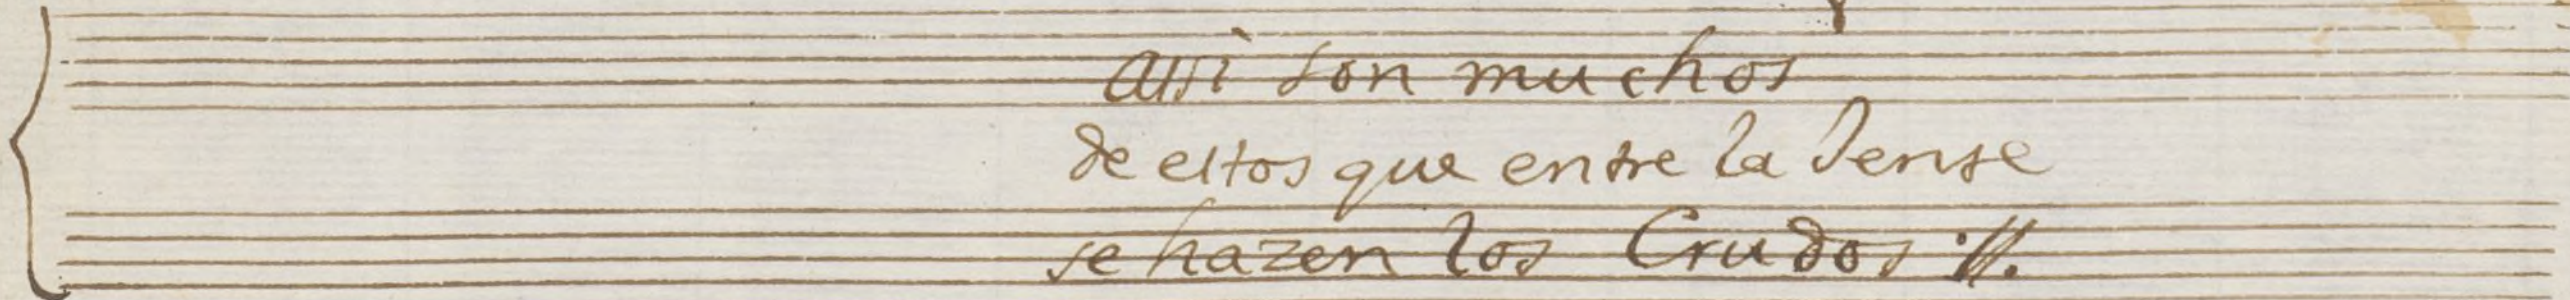 assi son muchos
de estos que entre la Jente
se hazen los Crudos .//.